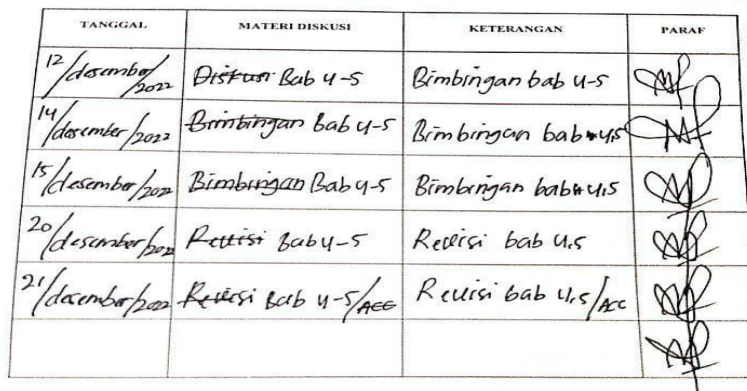 TANGGAL MATERI DISKUSI KETERANGAN PARAF
12/desember/2022 Diskusi Bab 4-5 Bimbingan bab 4-5
14/desember/2022 Bimbingan Bab 4-5 Bimbingan bab 4,5
15/desember/2022 Bimbingan Bab 4-5 Bimbingan bab 4,5
20/desember/2022 Revisi Bab 4-5 Revisi bab 4,5
21/desember/2022 Revisi Bab 4-5/ACC Revisi bab 4,5/ACC